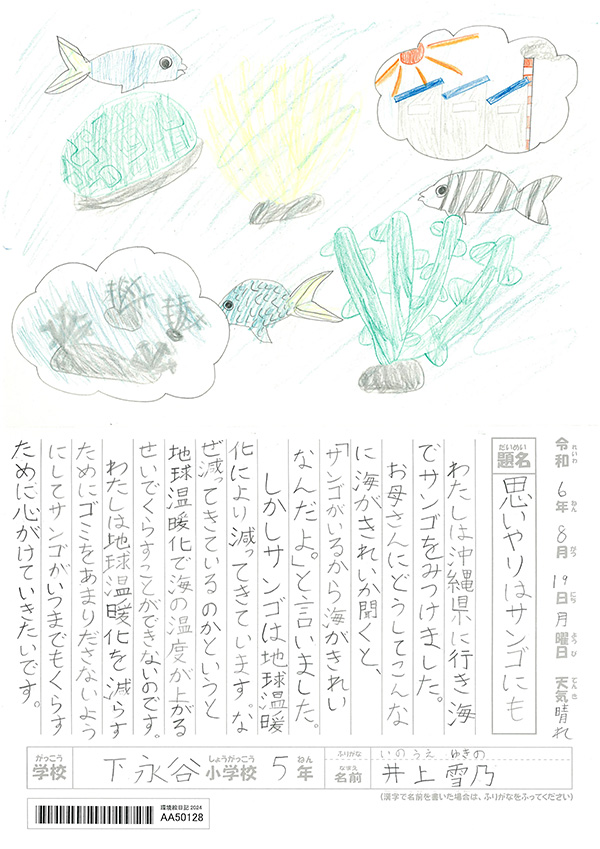 令和6年8月19日月曜日 天気晴れ
れいわ ねん がつ にち ようび てんき
だいめい
題名
思いやりはサンゴにも
わたしは沖縄県に行き海
でサンゴをみつけました。
お母さんにどうしてこんな
に海がきれいか聞くと、
「サンゴがいるから海がきれい
なんだよ。」と言いました。
しかしサンゴは地球温暖
化により減ってきています。な
ぜ減ってきているのかというと
地球温暖化で海の温度が上がる
せいでくらすことができないのです。
わたしは地球温暖化を減らす
ためにゴミをあまりださないよう
にしてサンゴがいつまでもくらす
ために心がけていきたいです。
がっこう しょうがっこう ねん
学校 下永谷小学校 5年
ふりがな いのうえ ゆきの
なまえ
名前 井上雪乃
(漢字で名前を書いた場合は、ふりがなをふってください)
環境絵日記 2024
AA50128